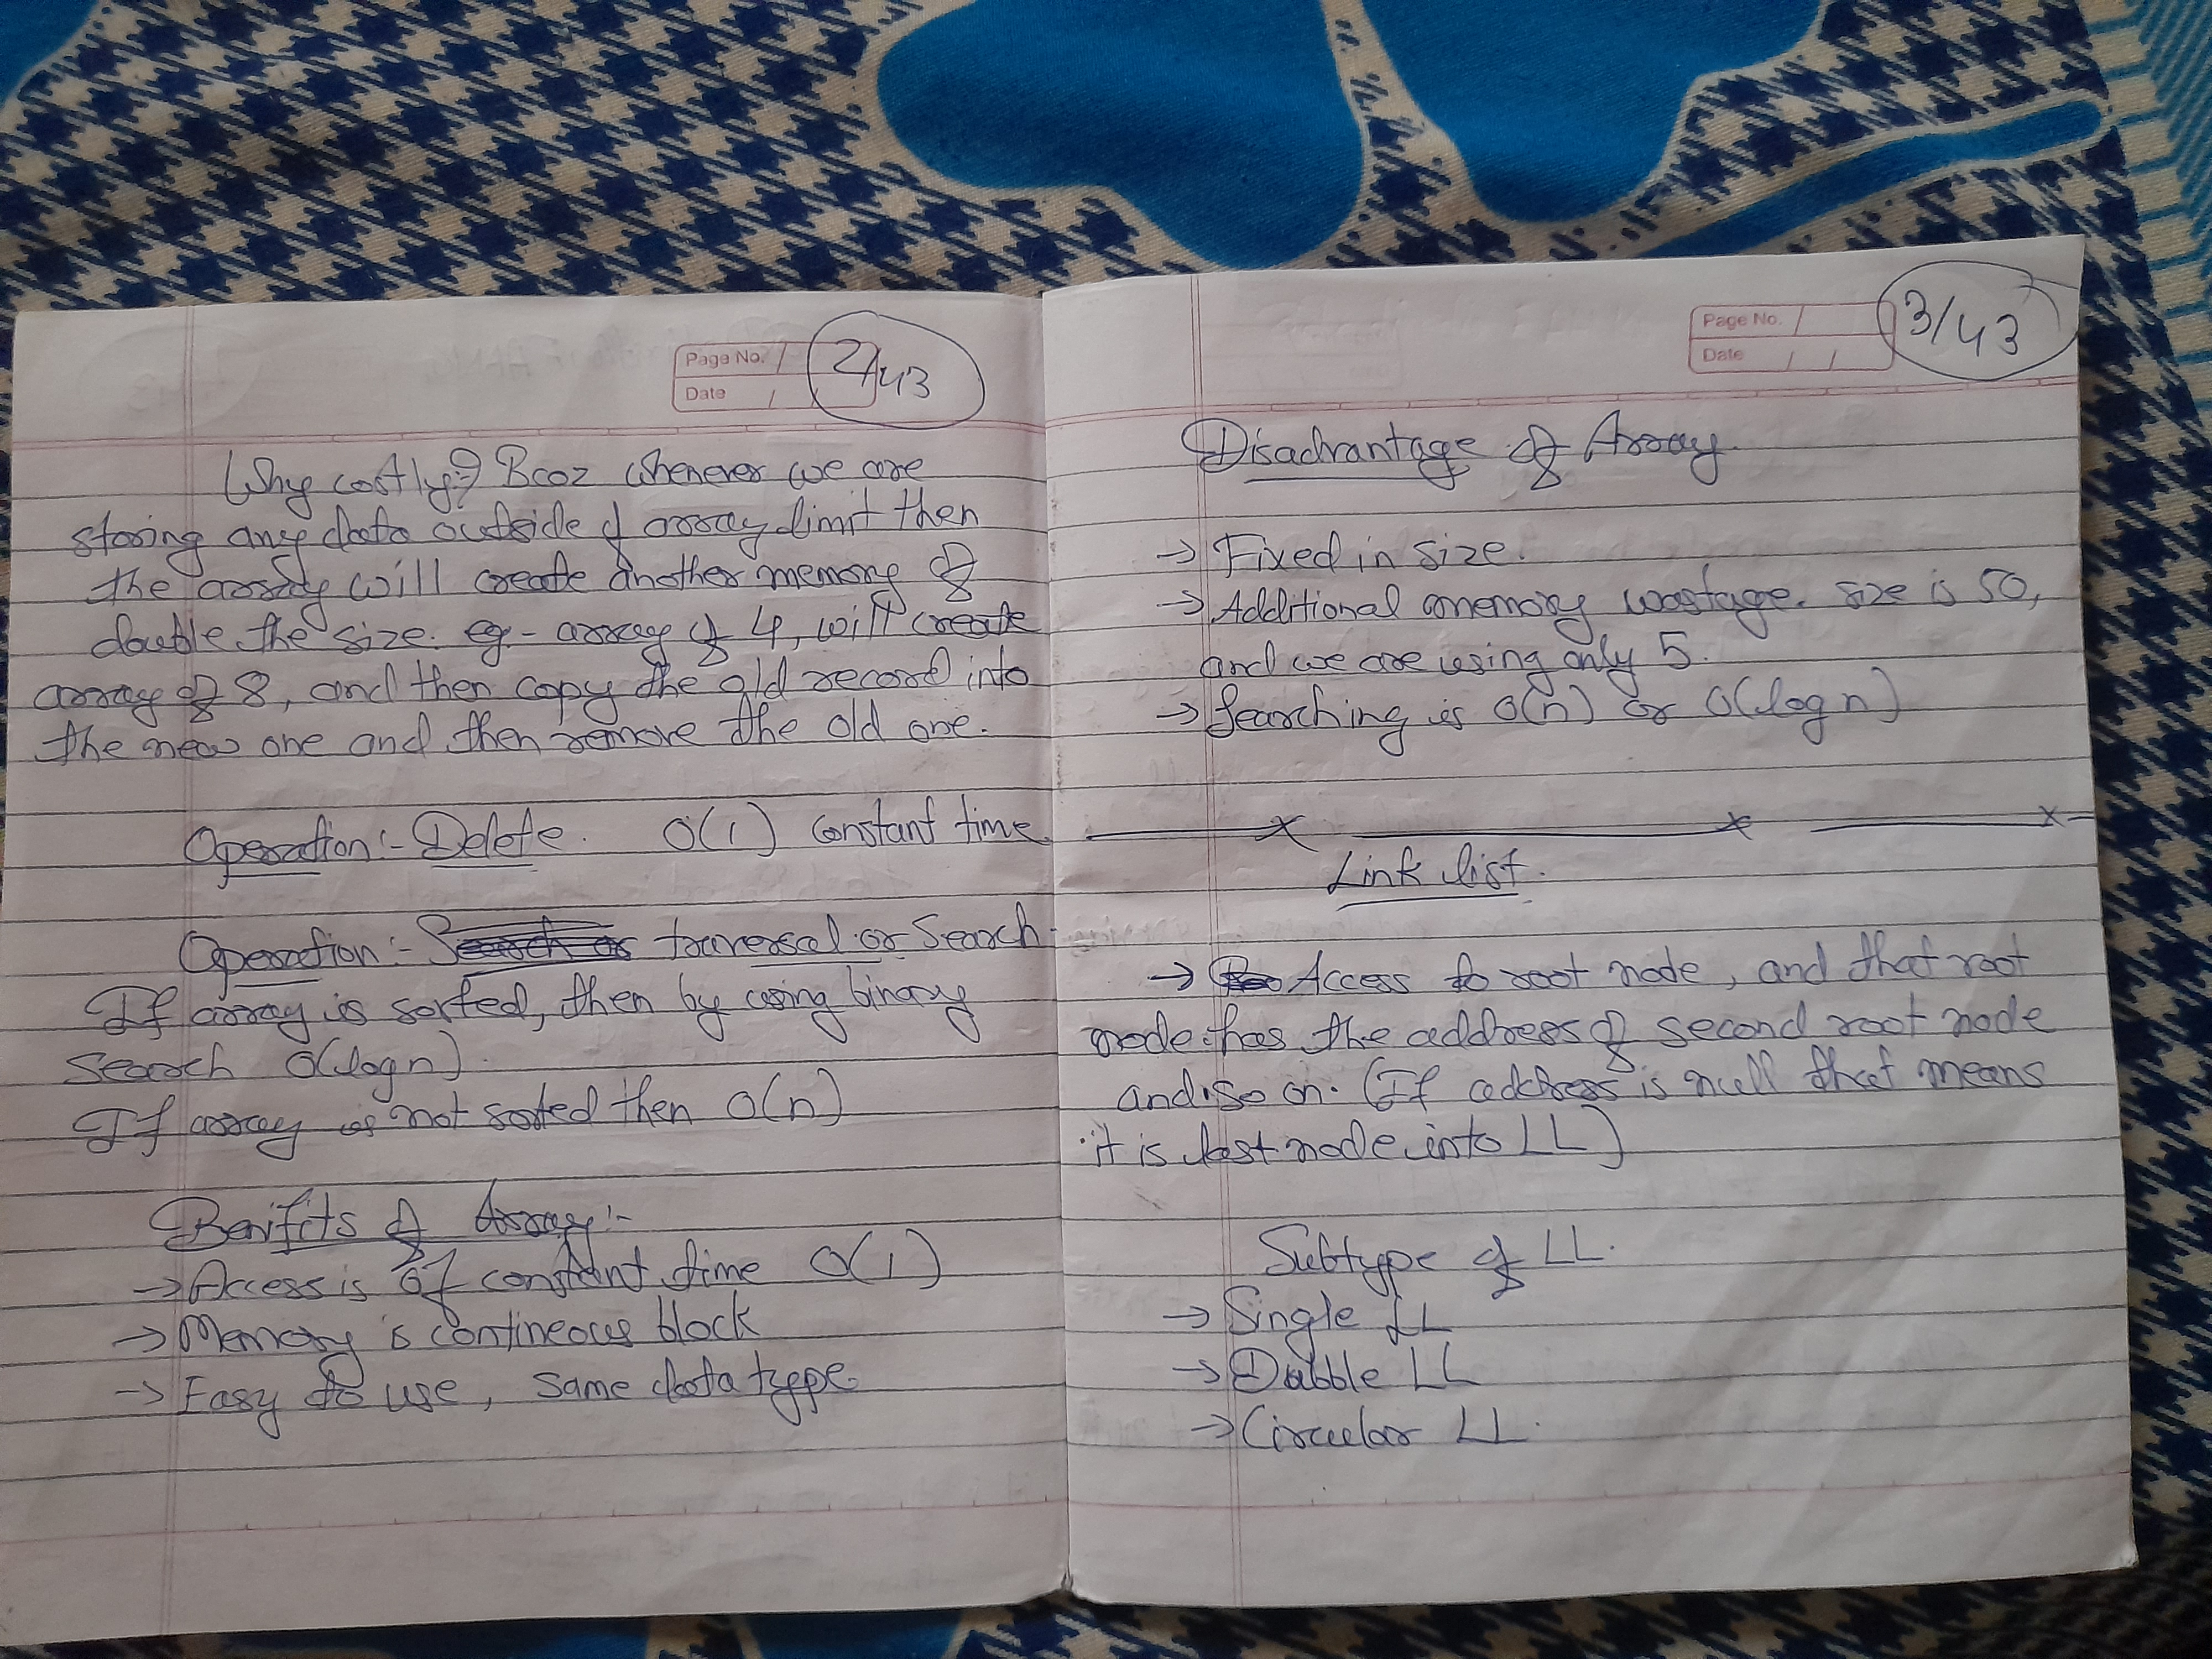 Page No. /
Date / /
2/43
Why costly:? Bcoz whenever we are
storing any data outside of array limit then
the array will create another memory of
double the size. eg - array of 4, will create
array of 8, and then copy the old record into
the new one and then remove the old one.
Operation:- Delete. O(1) constant time
Operation:- traversal or Search
If array is sorted, then by using binary
search O(log n).
If array is not sorted then O(n)
Benifits of Array:-
→ Access is of constant time O(1)
→ Memory is contineous block
→ Easy to use, same data type.
Page No. /
Date / /
3/43
Disadvantage of Array.
→ Fixed in size.
→ Additional memory wastage. size is 50,
and we are using only 5.
→ Searching is O(n) or O(log n)
Link list.
→ Access to root node, and that root
node has the address of second root node
and so on. (If address is null that means
it is last node into LL)
Subtype of LL.
→ Single LL
→ Dubble LL
→ Circular LL.